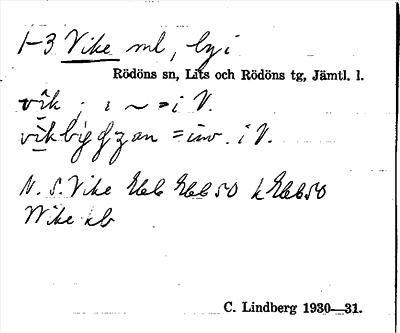 1-3 Vike ml, by i
Rödöns sn, Lits och Rödöns tg, Jämtl. l.
vik ; i ~ = i V.
= inv. i V.
N. S. Vike Ebb Ebb 50 k Ebb 50
Wike kb
C. Lindberg 1930—31.